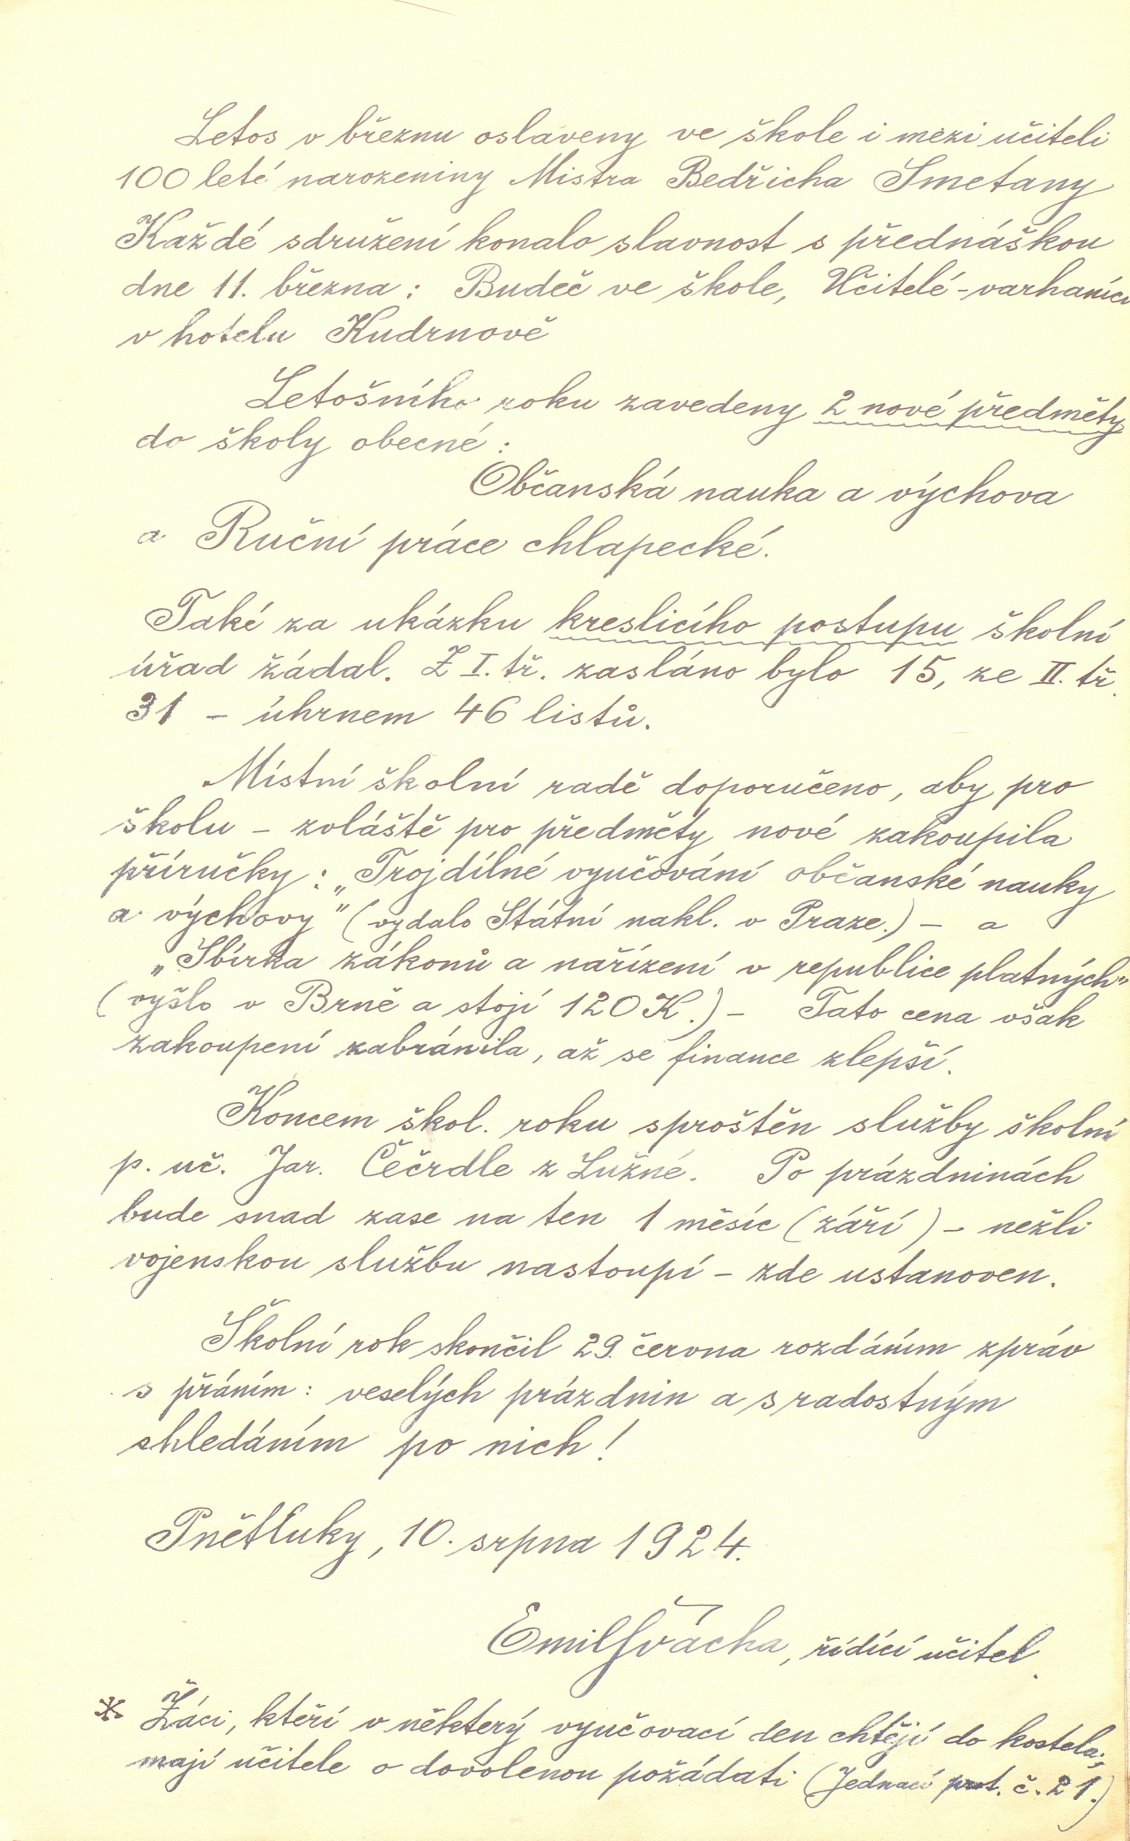 Letos v březnu oslaveny ve škole i mezi učiteli
100 leté narozeniny Mistra Bedřicha Smetany
Každé sdružení konalo slavnost s přednáškou
dne 11. března: Budeč ve škole, Učitelé-varhaníci
v hotelu Kudrnově
Letošního roku zavedeny 2 nové předměty
do školy obecné:
Občanská nauka a výchova
a Ruční práce chlapecké.
Také za ukázku kreslicího postupu školní
úřad žádal. Z I. tř. zasláno bylo 15, ze II. tř.
31 - úhrnem 46 listů.
Místní školní radě doporučeno, aby pro
školu - zvláště pro předměty nové zakoupila
příručky: „Trojdílné vyučování občanské nauky
a výchovy" (vydalo Státní nakl. v Praze.) - a
„Sbírka zákonů a nařízení v republice platných"
(vyšlo v Brně a stojí 120 K.) - Tato cena však
zakoupení zabránila, až se finance zlepší.
Koncem škol. roku sproštěn služby školní
p. uč. Jar. Čečrdle z Lužné. Po prázdninách
bude snad zase na ten 1 měsíc (září) - nežli
vojenskou službu nastoupí - zde ustanoven.
Školní rok skončil 29. června rozdáním zpráv
s přáním: veselých prázdnin a s radostným
shledáním po nich!
Pnětluky, 10. srpna 1924.
Emil Švácha, řídící učitel.
* Žáci, kteří v některý vyučovací den chtějí do kostela,
mají učitele o dovolenou požádati (Jednací prot. č. 21.)